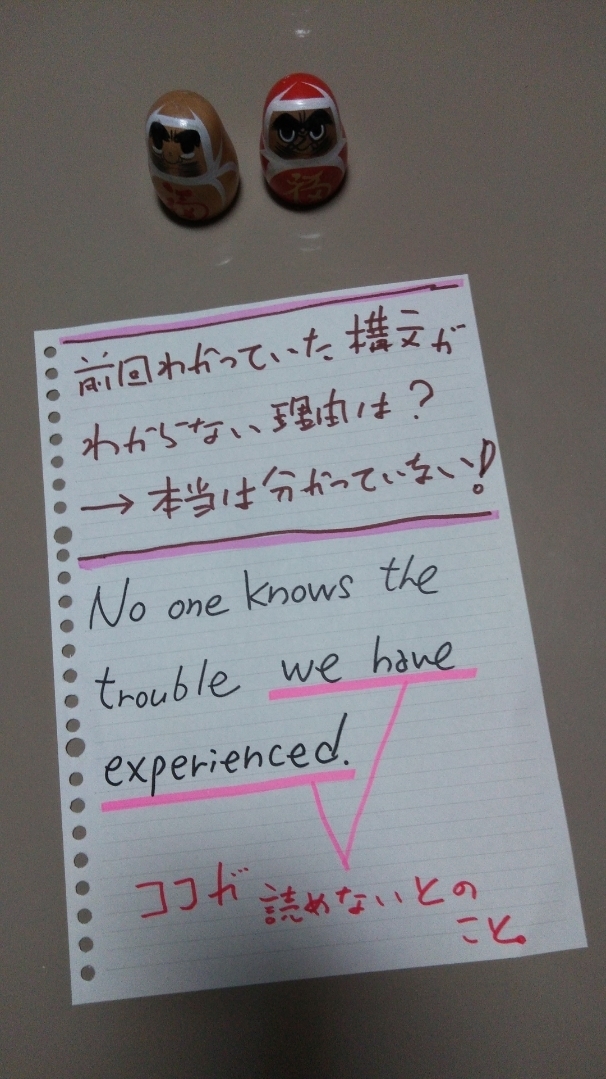 前回わかっていた構文が
わからない理由は?
→本当は分かっていない!
No one knows the
trouble we have
experienced.
ココが読めないとの
こと。